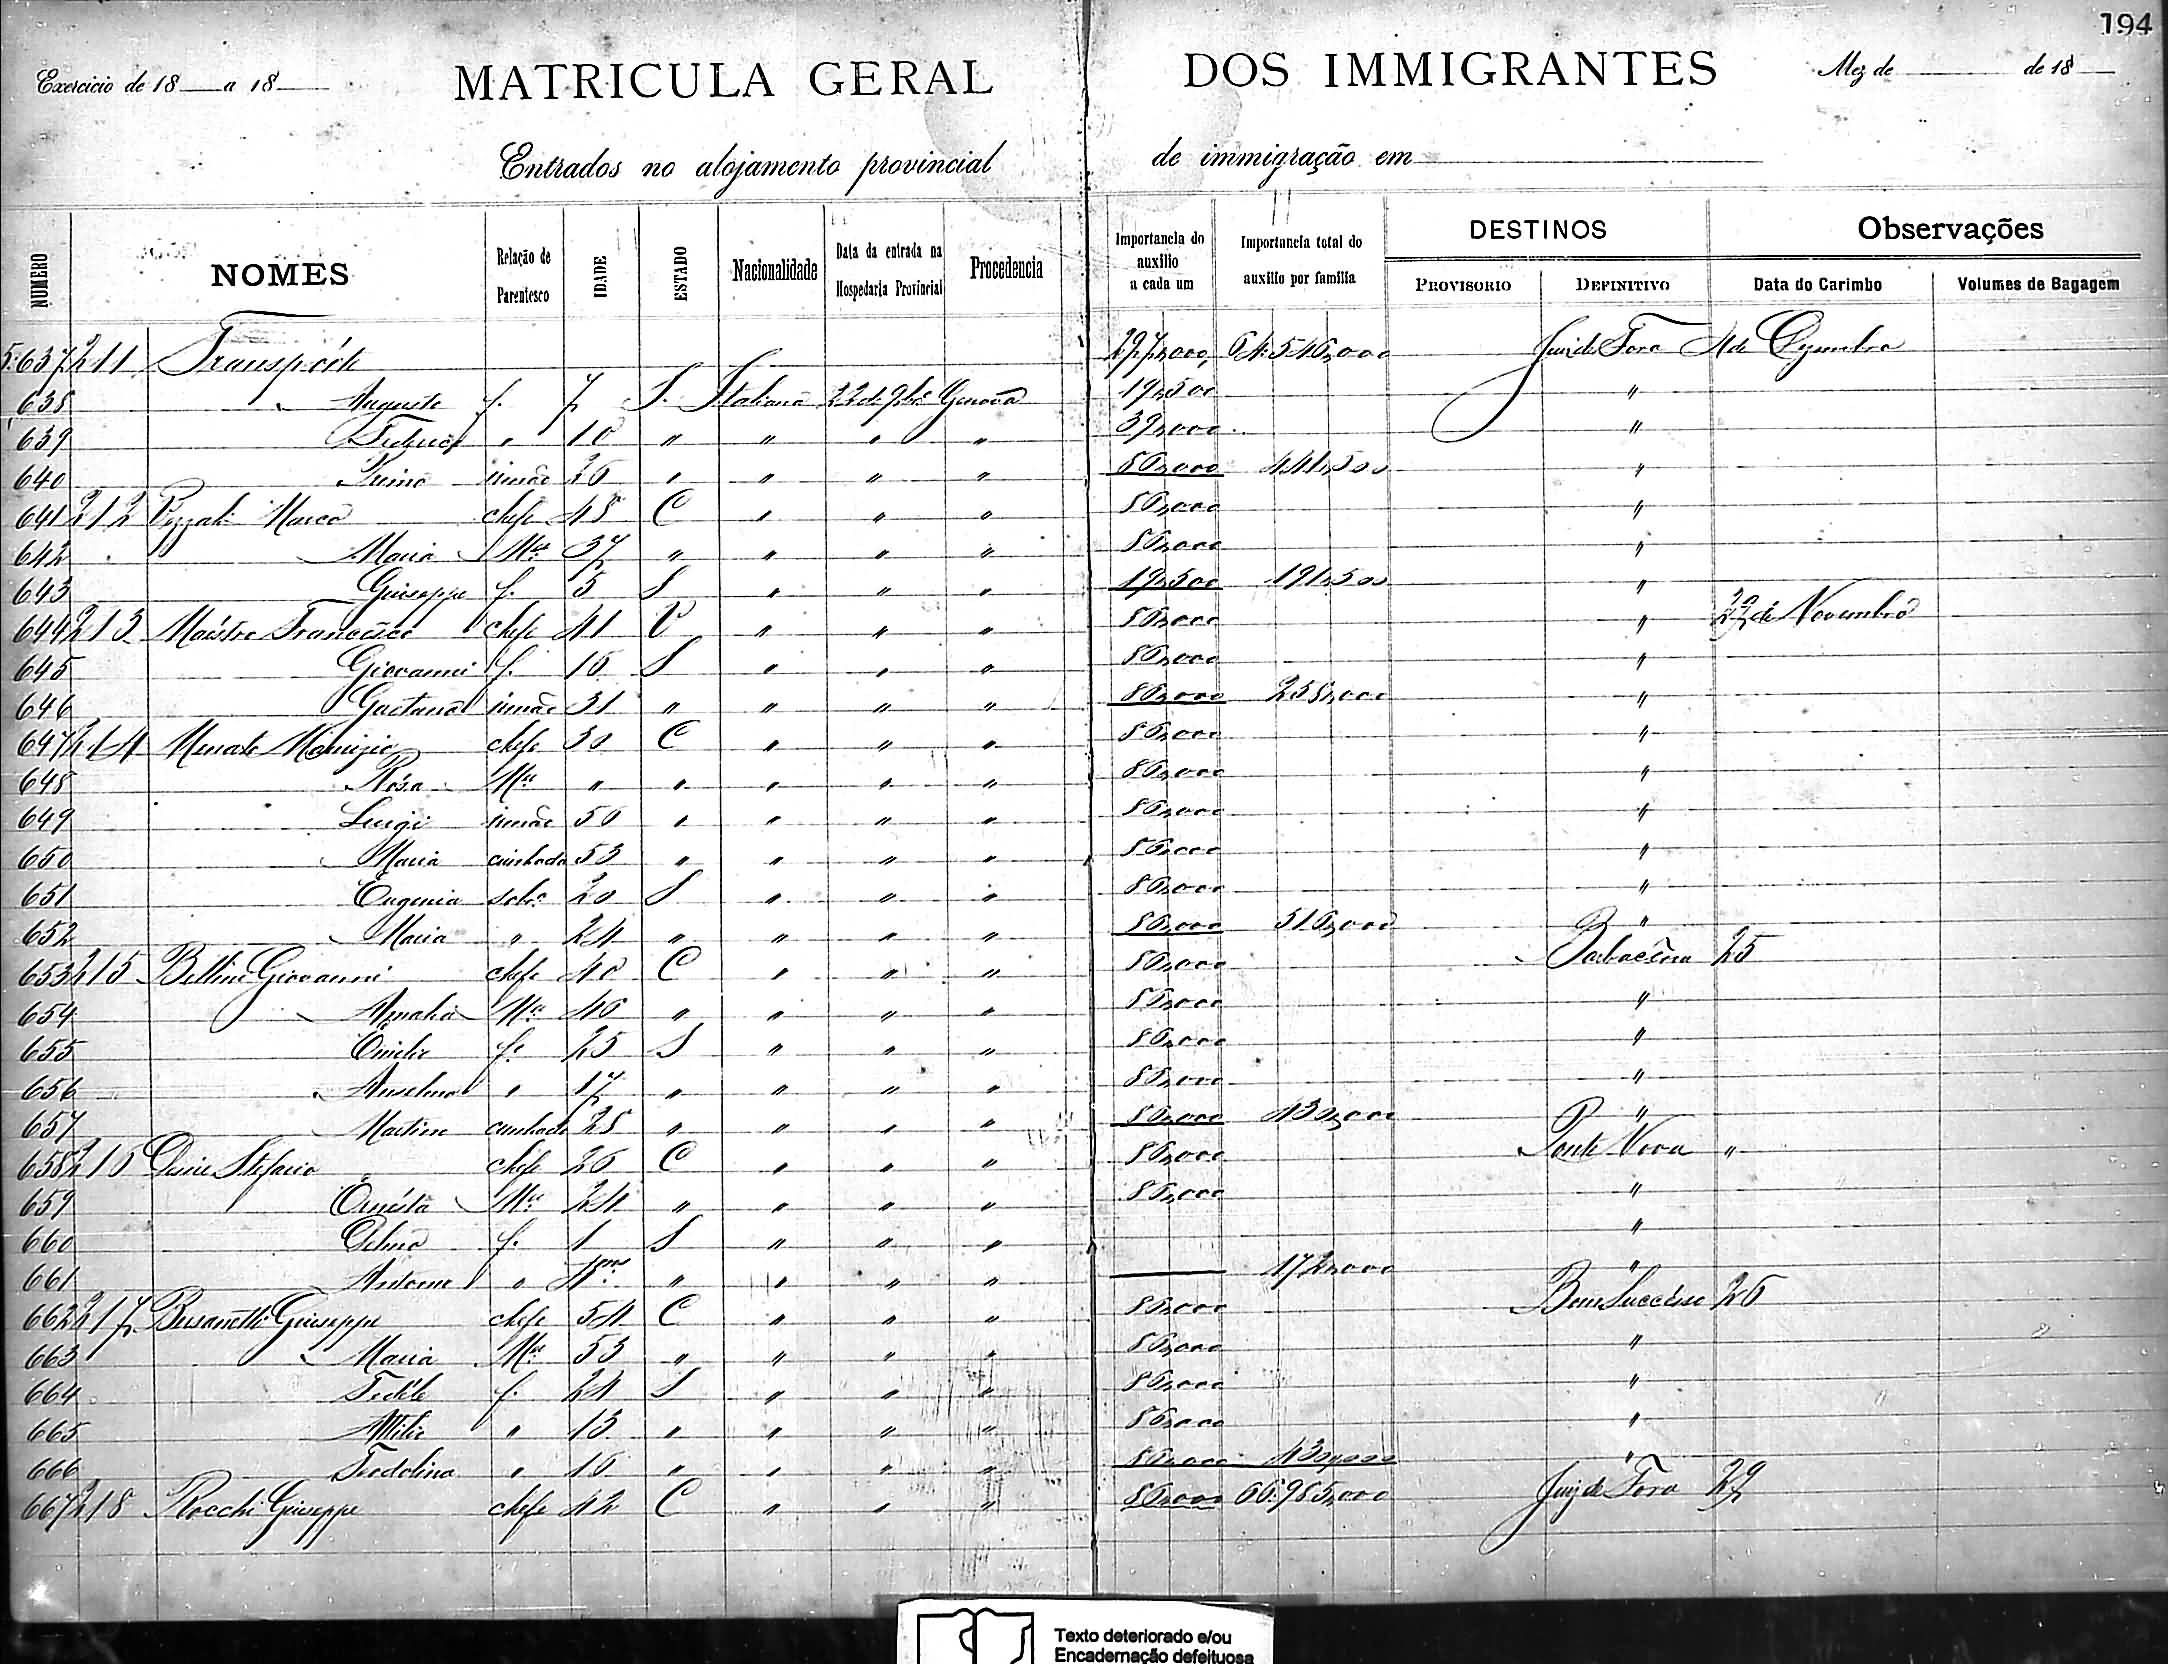 194
Exercicio de 18 a 18 MATRICULA GERAL DOS IMMIGRANTES Mez de de 18
Entrados no alojamento provincial de immigração em
NUMERO NOMES Relação de Parentesco IDADE ESTADO Nacionalidade Data da entrada na Hospedaria Provincial Procedencia Importancia do auxilio a cada um Importancia total do auxilio por familia DESTINOS PROVISORIO DEFINITIVO Observações Data do Carimbo Volumes de Bagagem
5:637 211 Transporte 297,000 64:546,000 Juiz de Fora 4 de Dezembro
638 " Augusto f. 7 S. Italiana 22 de 9bro Genova 19,500 "
639 " 10 " " " " 39,000 "
640 irmão 26 " " " " 86,000 441,500 "
641 212 Pezzali Marco chefe 48 C " " " 86,000 "
642 " Maria Mer 37 " " " " 86,000 "
643 Giuseppe f. 5 S " " " 19,500 191,500 "
644 213 Maistro Francesco chefe 41 V " " " 86,000 " 27 de Novembro
645 Giovanni f. 16 S " " " 86,000 "
646 Gaetano irmão 31 " " " " 86,000 258,000 "
647 214 chefe 30 C " " " 86,000 "
648 Rosa Mer " " " " " 86,000 "
649 Luigi irmão 50 " " " " 86,000 "
650 " Maria cunhada 53 " " " " 86,000 "
651 Eugenia sobra 20 S " " " 86,000 "
652 " Maria " 24 " " " " 86,000 516,000 "
653 215 Bellini Giovanni chefe 48 C " " " 86,000 Barbacena 25
654 " Amalia Mer 46 " " " " 86,000 "
655 f. 25 S " " " 86,000 "
656 " Anselmo " 17 " " " " 86,000 "
657 " Martino cunhado 28 " " " " 86,000 430,000 "
658 216 Stefano chefe 26 C " " " 86,000 Ponte Nova "
659 Ernesta Mer 24 " " " " 86,000 "
660 f. 1 S " " " "
661 Antonio " " " " " 172,000 "
662 217 Busanetti Giuseppe chefe 54 C " " " 86,000 Bom Successo 26
663 " Maria Mer 53 " " " " 86,000 "
664 f. 24 S " " " 86,000 "
665 Attilio " 13 " " " " 86,000 "
666 Teodolina " 16 " " " " 86,000 430,000 "
667 218 Rocchi Giuseppe chefe 42 C " " " 86,000 66:985,000 Juiz de Fora 27
Texto deteriorado e/ou
Encadernação defeituosa